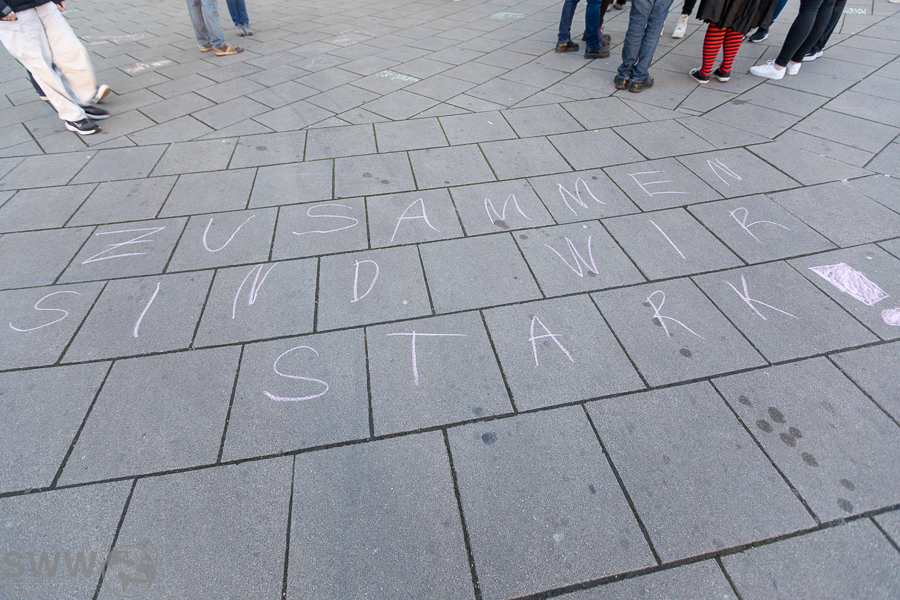 ZUSAMMEN
SIND WIR
STARK!
SWW